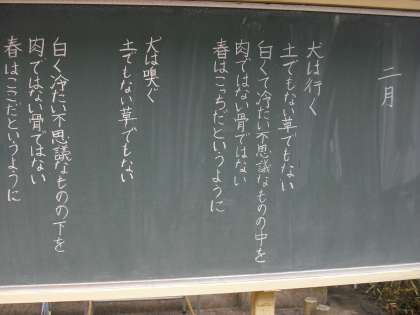 二月
犬は行く
土でもない草でもない
白くて冷たい不思議なものの中を
肉ではない骨ではない
春はこっちだというように
犬は嗅ぐ
土でもない草でもない
白く冷たい不思議なものの下を
肉ではない骨ではない
春はここだというように